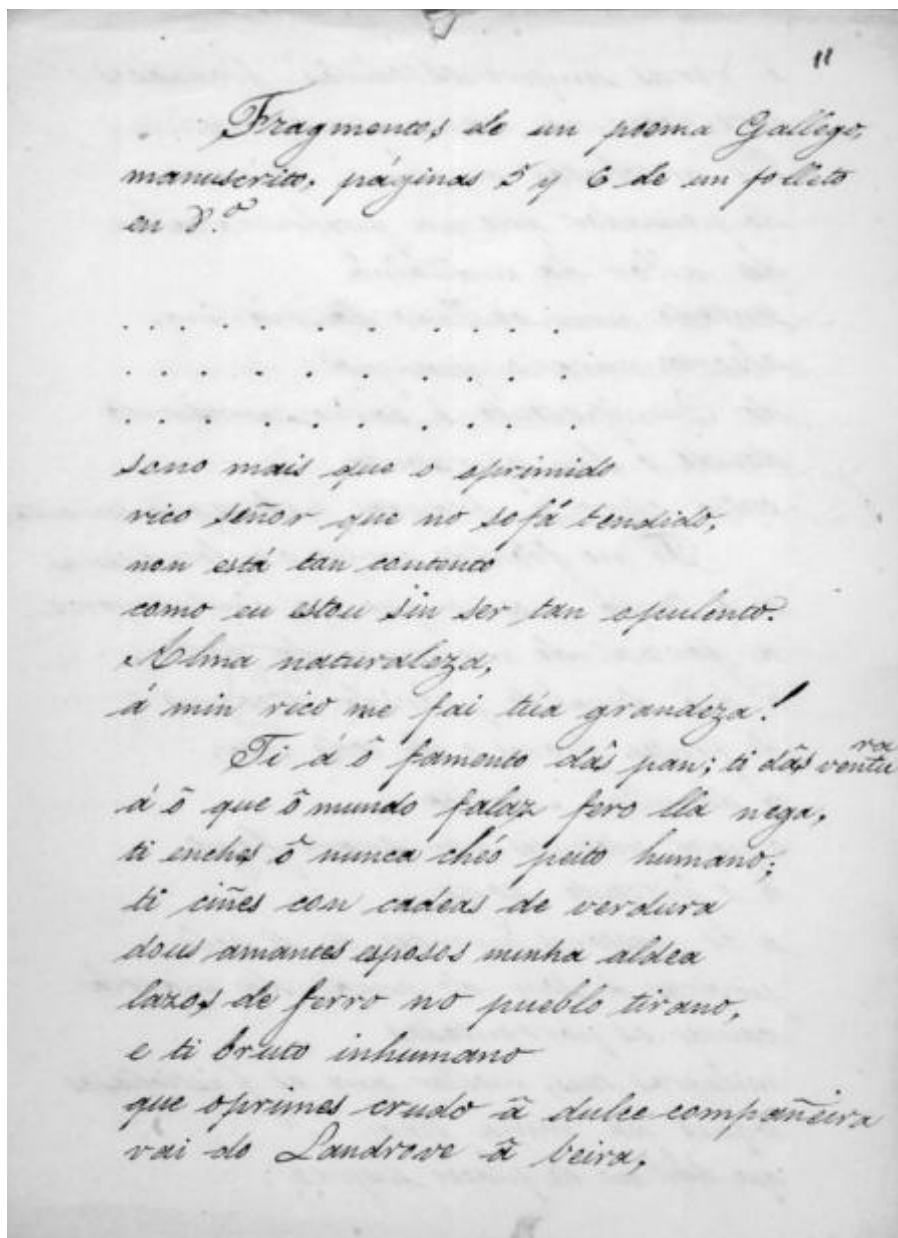 11
Fragmentos de un poema Gallego,
manuscrito, páginas 5 y 6 de un folleto
en 8.º
. . . . . . . . . . . .
. . . . . . . . . . . .
. . . . . . . . . . . .
sono mais que o oprimido
rico señor que no sofá tendido,
non está tan contento
como eu estou sin ser tan opulento.
Alma naturaleza,
á min rico me fai túa grandeza!
Ti á ô famento dâs pan; ti dâs ventura
á ô que ô mundo falaz fero lla nega,
ti enches ô nunca chéo peito humano;
ti ciñes con cadeas de verdura
dous amantes esposos minha aldea
lazos de ferro no pueblo tirano,
e ti bruto inhumano
que oprimes crudo â dulce compañeira
vai do Landrove â beira,